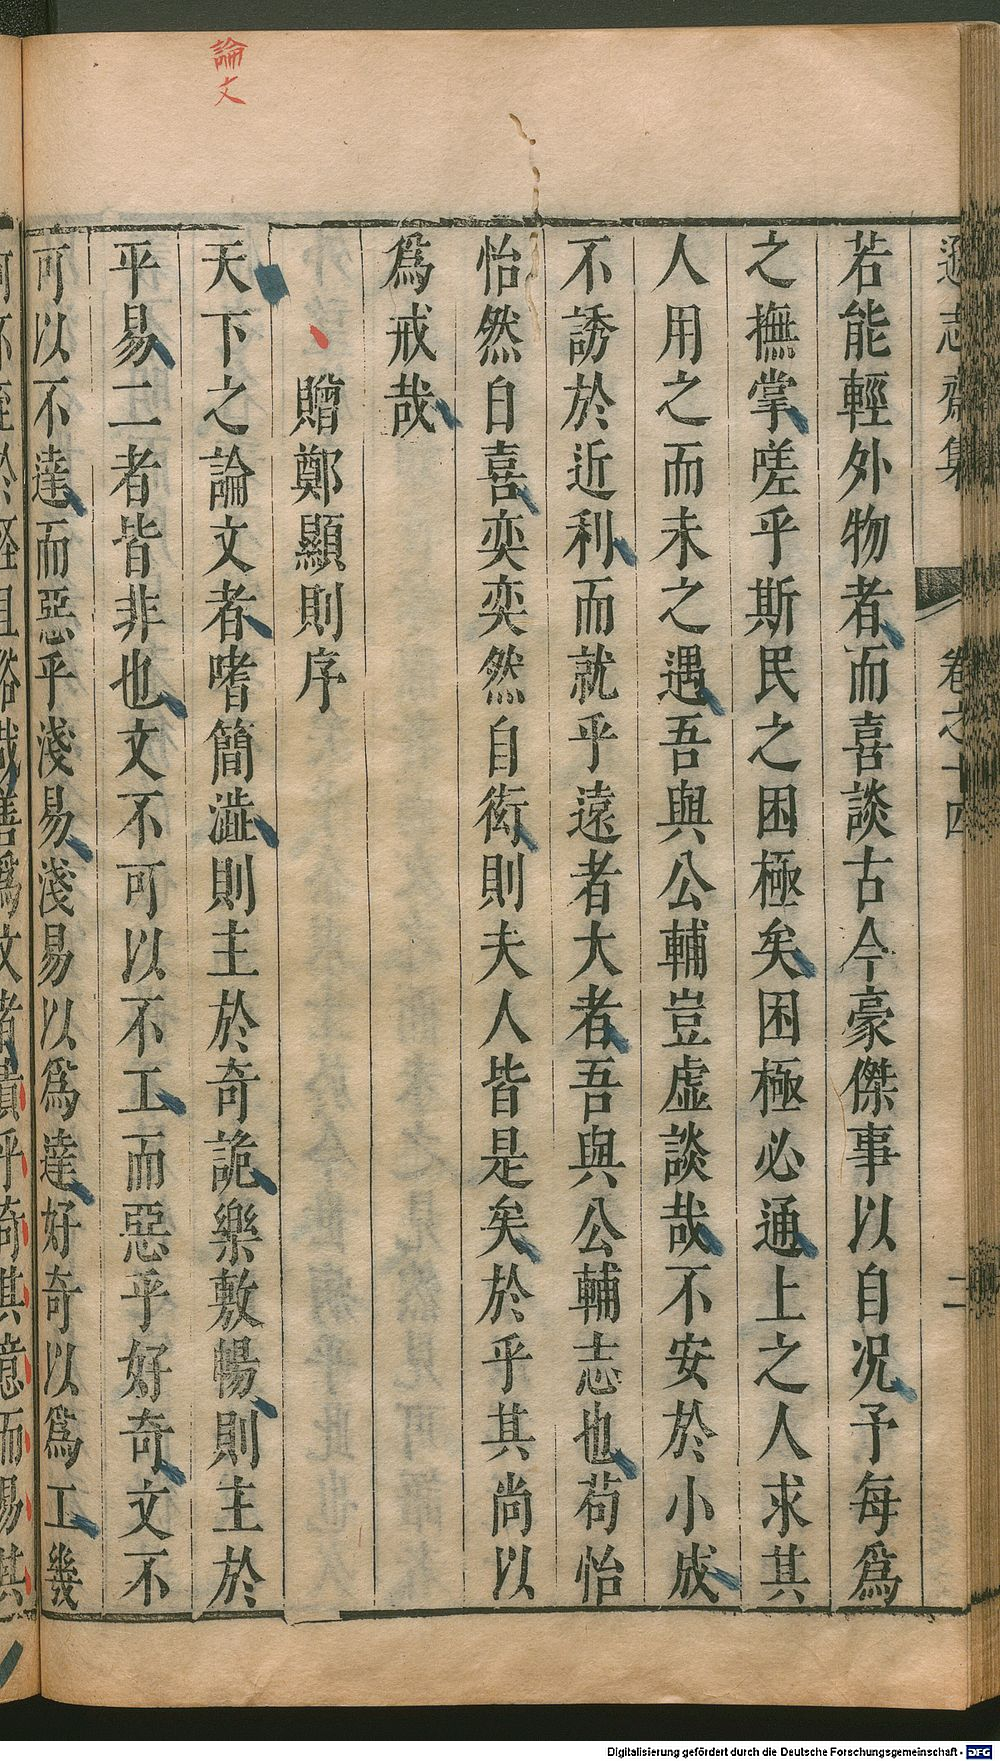 論文
遜志齋集 卷之十四 二
若能輕外物者而喜談古今豪傑事以自况予每爲
之撫掌嗟乎斯民之困極矣困極必通上之人求其
人用之而未之遇吾與公輔豈虛談哉不安於小成
不誘於近利而就乎遠者大者吾與公輔志也苟怡
怡然自喜奕奕然自衒則夫人皆是矣於乎其尚以
爲戒哉
贈鄭顯則序
天下之論文者嗜簡澁則主於奇詭樂敷暢則主於
平易二者皆非也文不可以不工而惡乎好奇文不
可以不達而惡乎淺易淺易以爲達好奇以爲工幾
何不至於
哉善爲文者貴乎奇其意而易其
Digitalisierung gefördert durch die Deutsche Forschungsgemeinschaft - DFG